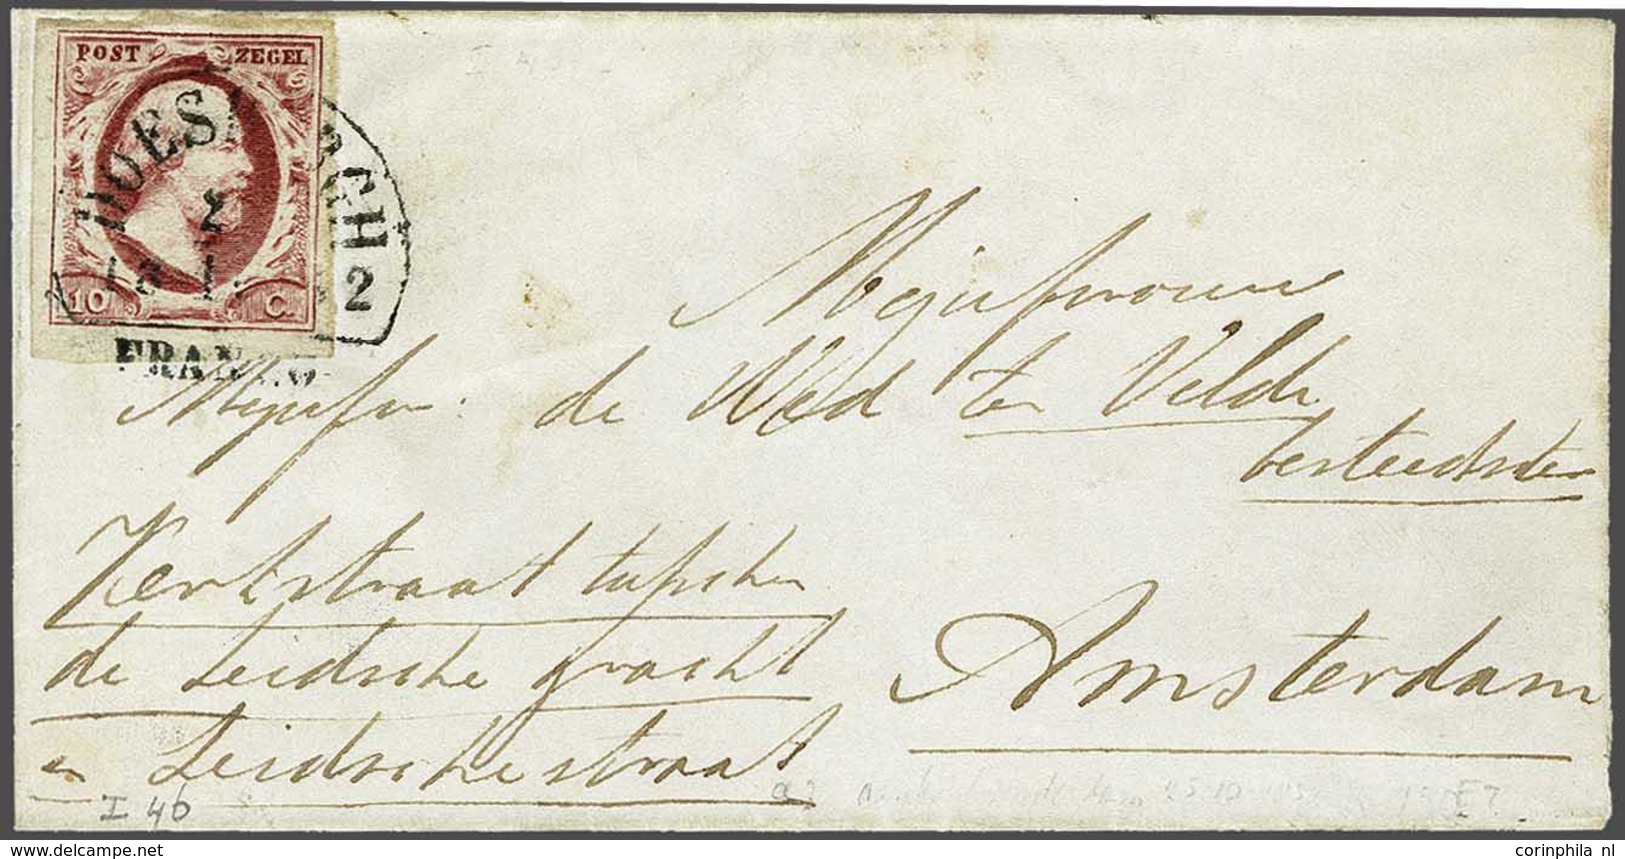 POST ZEGEL
DOES RGH
2
18 1 2
10 C.
FRANCO
Mejufvrouw
Mejufvr. de Wed ter Velde
besteedster
Kerkstraat tusschen
de Leidsche gracht
en Leidschestraat
Amsterdam
I 46
www.delcampe.net
corinphila nl